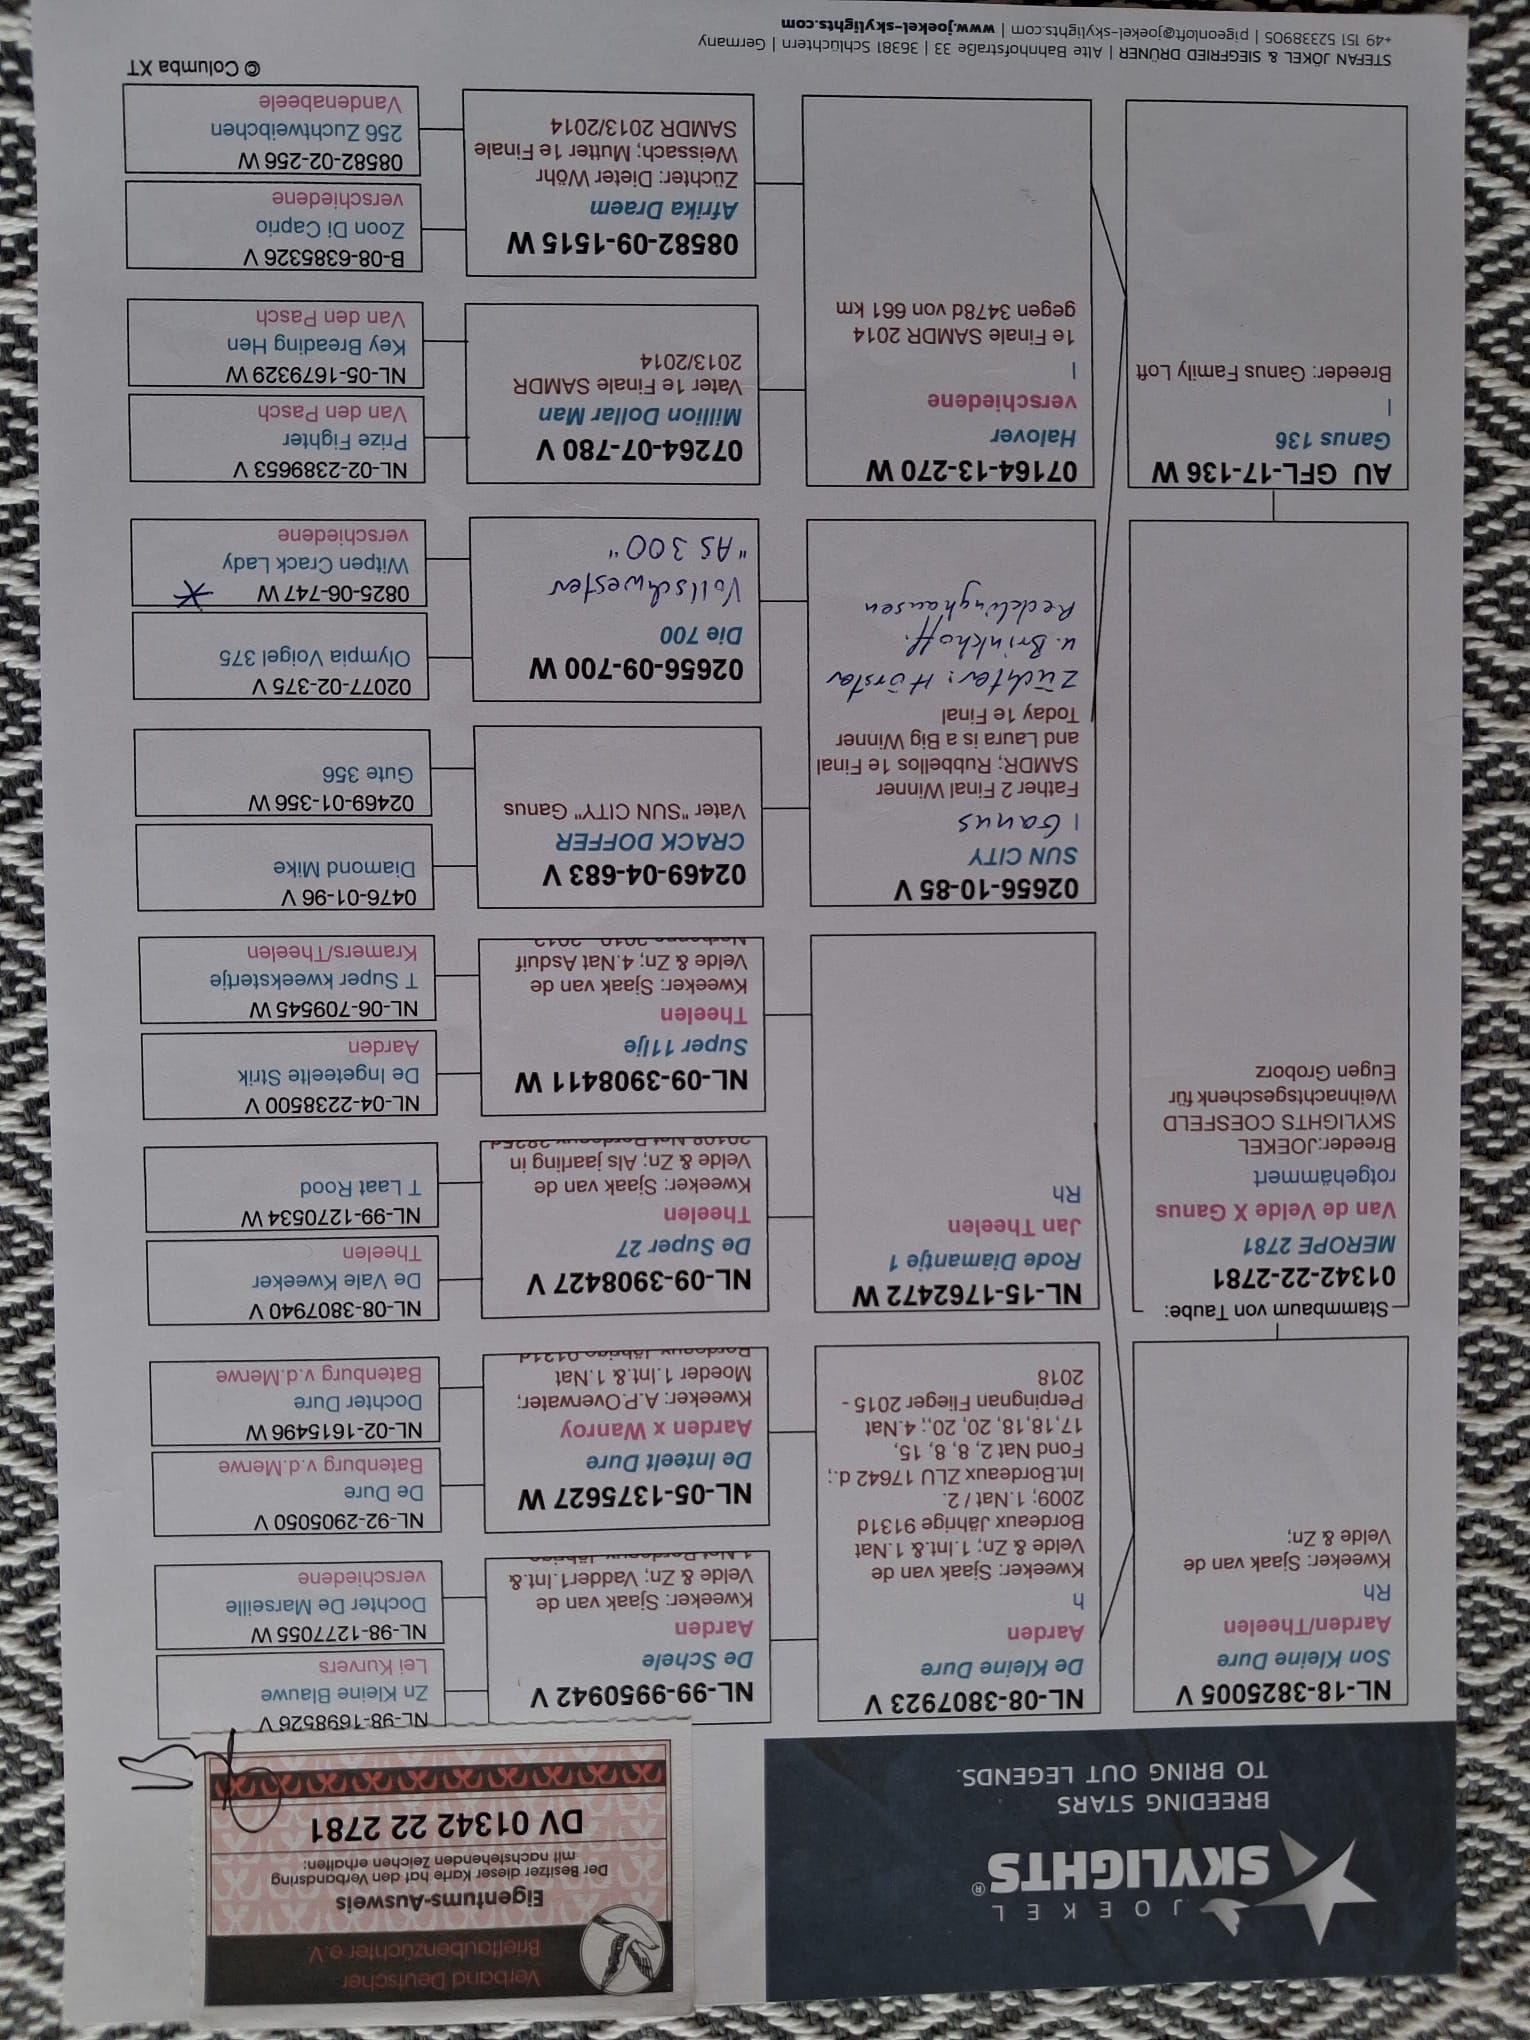 JOEKEL
SKYLIGHTS®
BREEDING STARS
TO BRING OUT LEGENDS.
Verband Deutscher
Brieftaubenzüchter e.V.
Eigentums-Ausweis
Der Besitzer dieser Karte hat den Verbandsring
mit nachstehenden Zeichen erhalten:
DV 01342 22 2781
NL-18-3825005 V
Son Kleine Dure
Aarden/Theelen
Rh
Kweeker: Sjaak van de
Velde & Zn;
Stammbaum von Taube:
01342-22-2781
MEROPE 2781
Van de Velde X Ganus
rotgehämmert
Breeder:JOEKEL
SKYLIGHTS COESFELD
Weihnachtsgeschenk für
Eugen Groborz
AU GFL-17-136 W
Ganus 136
|
Breeder: Ganus Family Loft
NL-08-3807923 V
De Kleine Dure
Aarden
h
Kweeker: Sjaak van de
Velde & Zn; 1.Int.& 1.Nat
Bordeaux Jährige 9131d
2009; 1.Nat / 2.
Int.Bordeaux ZLU 17642 d.;
Fond Nat 2, 8, 8, 15,
17,18,18, 20, 20,; 4.Nat
Perpingnan Flieger 2015 -
2018
NL-15-1762472 W
Rode Diamantje 1
Jan Theelen
Rh
02656-10-85 V
SUN CITY
| Ganus
Father 2 Final Winner
SAMDR; Rubbellos 1e Final
and Laura is a Big Winner
Today 1e Final
Züchter: Hörster
u. Brinkhoff.
Recklinghausen
07164-13-270 W
Halover
verschiedene
|
1e Finale SAMDR 2014
gegen 3478d von 661 km
NL-99-9950942 V
De Schele
Aarden
Kweeker: Sjaak van de
Velde & Zn; Vadder1.Int.&
1.Nat Bordeaux Jährige
NL-05-1375627 W
De Inteelt Dure
Aarden x Wanroy
Kweeker: A.P.Overwater;
Moeder 1.Int.& 1.Nat
Bordeaux Jährige 9131d
NL-09-3908427 V
De Super 27
Theelen
Kweeker: Sjaak van de
Velde & Zn; Als jaarling in
NL-09-3908411 W
Super 11Ije
Theelen
Kweeker: Sjaak van de
Velde & Zn; 4.Nat Asduif
02469-04-683 V
CRACK DOFFER
Vater "SUN CITY" Ganus
02656-09-700 W
Die 700
Vollschwester
"AS 300"
07264-07-780 V
Million Dollar Man
Vater 1e Finale SAMDR
2013/2014
08582-09-1515 W
Afrika Draem
Züchter: Dieter Wöhr
Weissach; Mutter 1e Finale
SAMDR 2013/2014
NL-98-1698526 V
Zn Kleine Blauwe
Lei Kurvers
NL-98-1277055 W
Dochter De Marseille
verschiedene
NL-92-2905050 V
De Dure
Batenburg v.d.Merwe
NL-02-1615496 W
Dochter Dure
Batenburg v.d.Merwe
NL-08-3807940 V
De Vale Kweeker
Theelen
NL-99-1270534 W
T Laat Rood
NL-04-2238500 V
De Ingeteelte Strik
Aarden
NL-06-709545 W
T Super kweekstertje
Kramers/Theelen
0476-01-96 V
Diamond Mike
02469-01-356 W
Gute 356
02077-02-375 V
Olympia Voigel 375
0825-06-747 W
Witpen Crack Lady
verschiedene
NL-02-2389653 V
Prize Fighter
Van den Pasch
NL-05-1679329 W
Key Breading Hen
Van den Pasch
B-08-6385326 V
Zoon Di Caprio
verschiedene
08582-02-256 W
256 Zuchtweibchen
Vandenabeele
© Columba XT
STEFAN JÖKEL & SIEGFRIED DRÜNER | Alte Bahnhofstraße 33 | 36381 Schlüchtern | Germany
+49 151 52338905 | pigeonloft@joekel-skylights.com | www.joekel-skylights.com